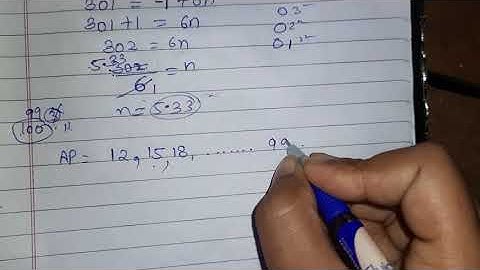 301 = -1 + 6n
301 + 1 = 6n
302 = 6n
5.33
302 = n
6 1
n = 5.33
03
02
01
99
100
AP = 12, 15, 18, ........ 99